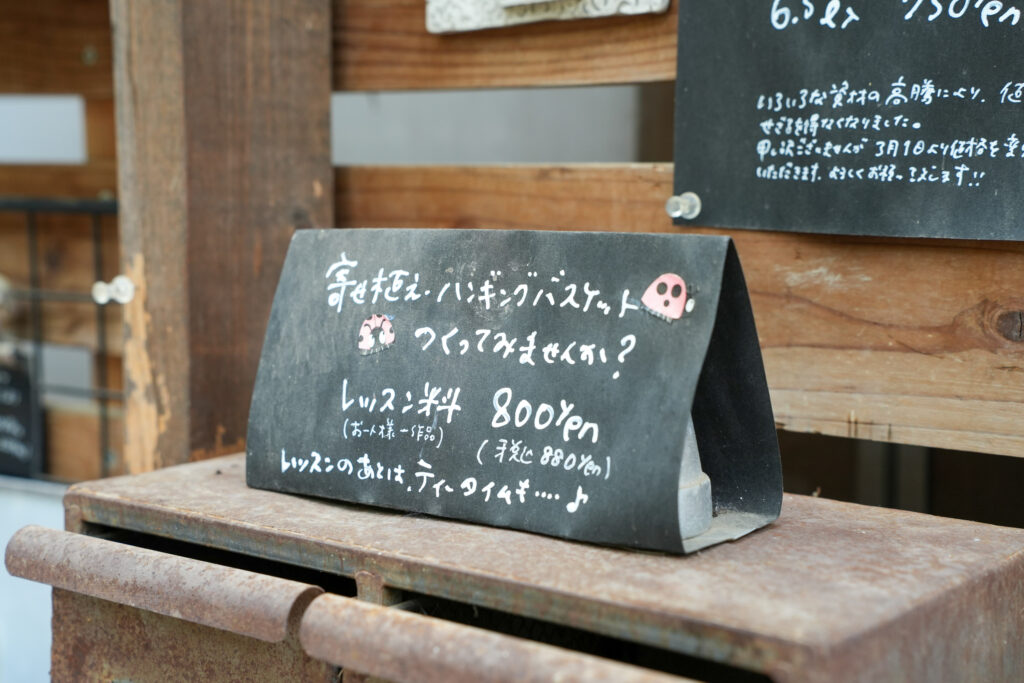 6.5ℓ 750yen
いろいろな資材の高騰により、価
せざるを得なくなりました。
申し訳ございませんが 3月1日より価格を変
いただきます。よろしくお願いします!!
寄せ植え・ハンギングバスケット
つくってみませんか?
レッスン料 800yen
(お一人様一作品) (税込880yen)
レッスンのあとは、ティータイムも‥‥♪